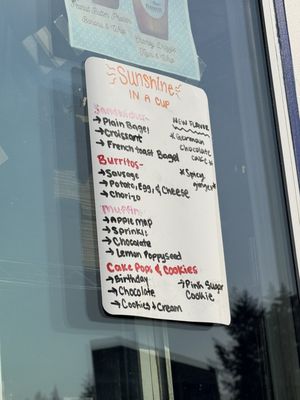 Peanut Butter, Protein
Banana & Whip
SUNSHINE
IN A CUP
Sandwiches-
→Plain Bagel
→Croissant
→French toast Bagel
Burritos-
→Sausage
→Potato, Egg, & Cheese
→Chorizo
Muffin-
→Apple map
→Sprinkle
→Chocolate
→Lemon Poppyseed
Cake Pops & Cookies
→Birthday
→Chocolate
→Cookies & Cream
*NEW FLAVOR
*German
Chocolate
Cake*
*Spicy
ginger*
→Pink Sugar
Cookie